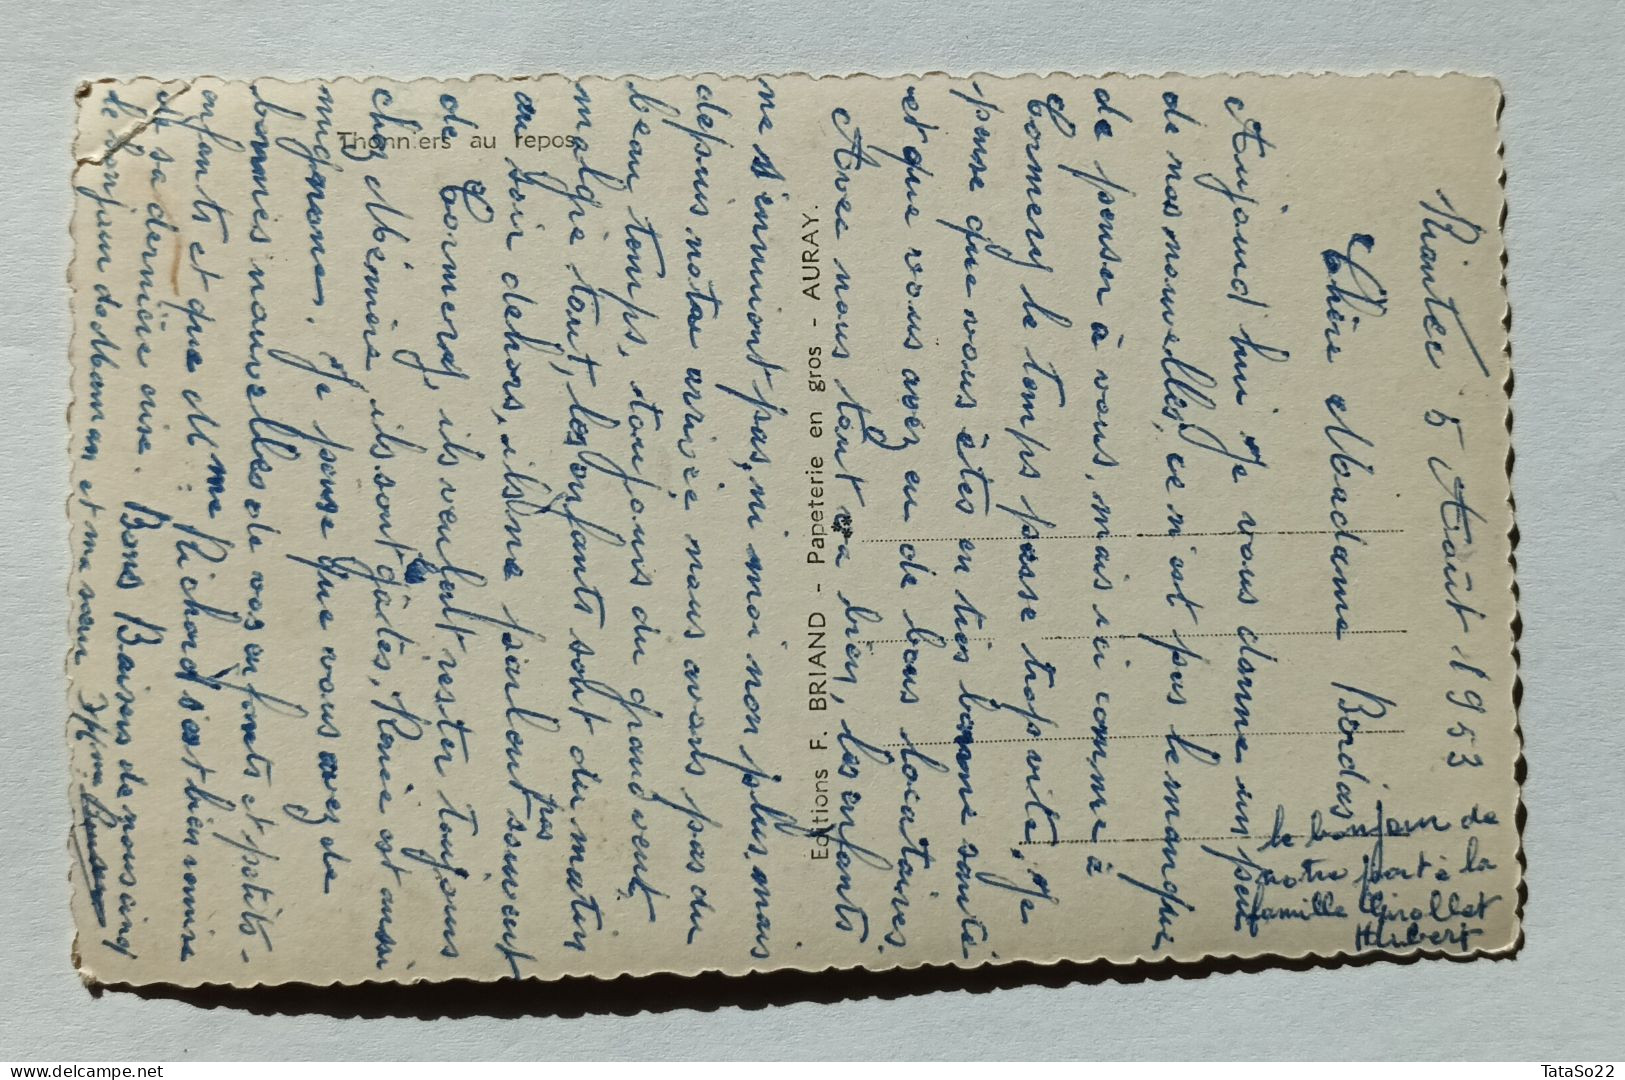 Riantec 5 Août 1953
Chère Madame Bordas
Aujourd'hui Je vous donne un peu
de nos nouvelles, ce n'est pas le manque
de penser à vous, mais ici comme à
Cormery le temps passe trop vite, Je
pense que vous êtes en très bonne santé
et que vous avez eu de bons locataires.
Avec nous tout va bien, les enfants
ne s'ennuient pas, ni moi non plus, mais
depuis notre arrivée nous avons pas du
beau temps, toujours du grand vent,
malgré tout, les enfants sont du matin
au soir dehors, ils ne parlent pas souvent
de Cormery, ils veulent rester toujours
chez Mémère, ils sont gâtés, René est aussi
mignonne. Je pense que vous avez de
bonnes nouvelles de vos enfants et petits-
enfants et que Mme Richard s'est bien remise
de sa dernière crise. Bons Baisers de nous cinq
le bonjour de Maman et ma sœur
le bonjour de
notre part à la
famille Girollet
Hubert
Thonniers au repos
Editions F. BRIAND - Papeterie en gros - AURAY.
TataSo22